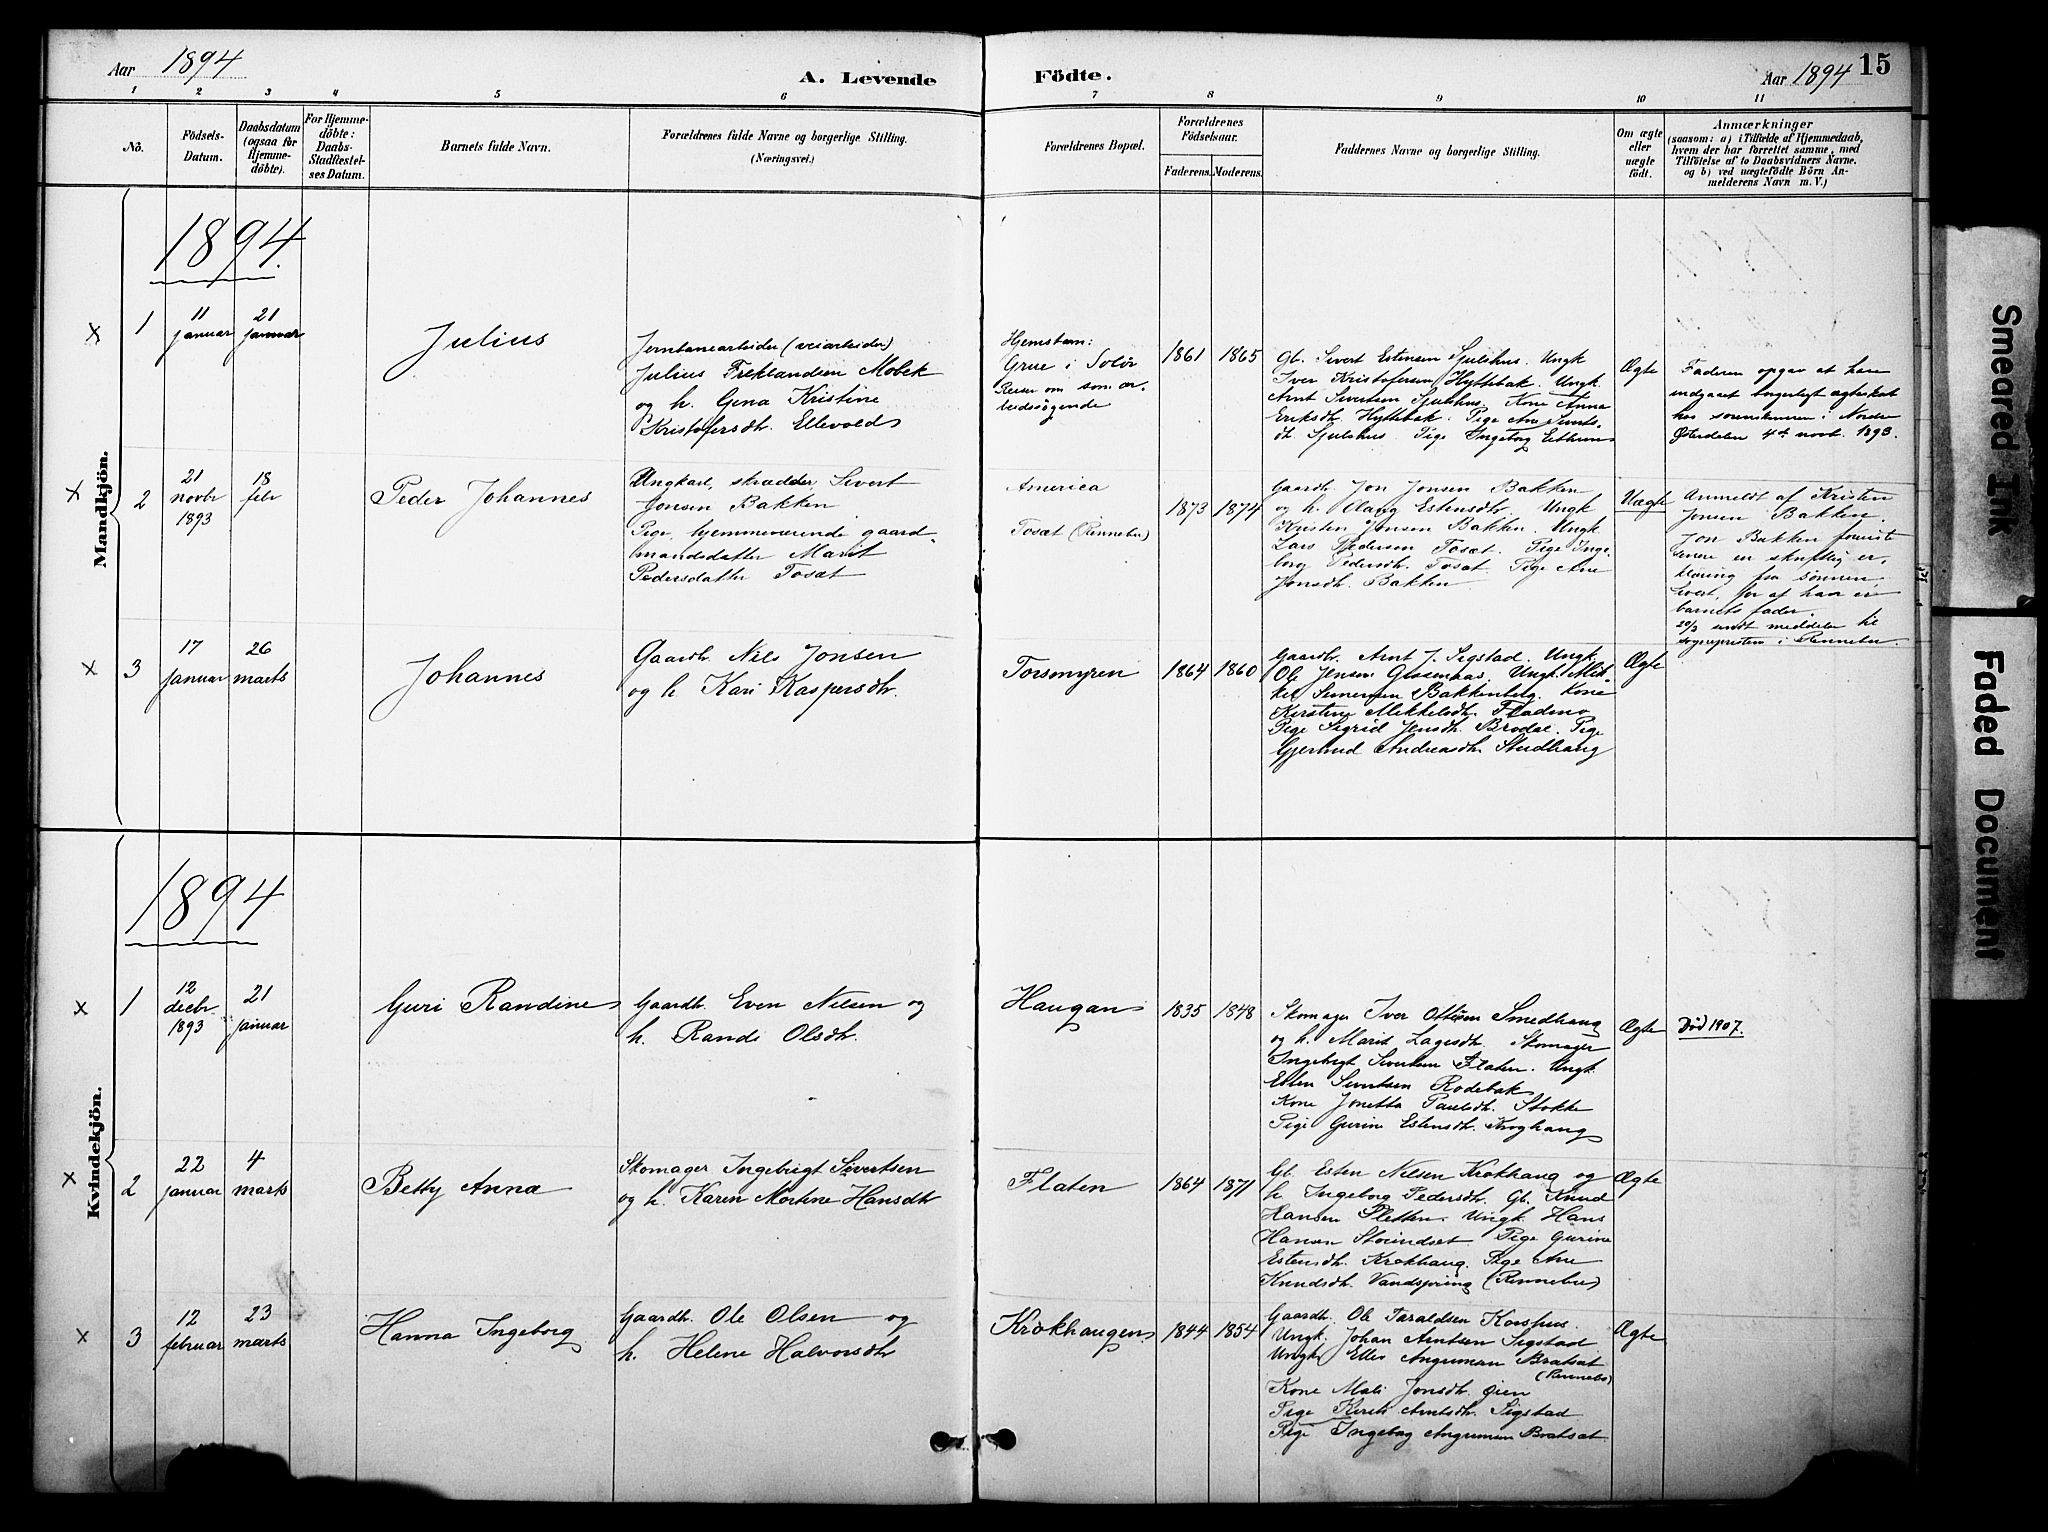 Aar 1894
A. Levende
Födte.
Aar 1894
15
1 2 3 4 5 6 7 8 9 10 11
Nô.
Födsels-
Datum.
Daabsdatum
(ogsaa for
Hjemme-
döbte).
For Hjemme-
döbte:
Daabs-
Stadfæstel-
ses Datum.
Barnets fulde Navn.
Forældrenes fulde Navne og borgerlige Stilling.
(Næringsvei.)
Forældrenes Bopæl.
Forældrenes
Födselsaar.
Faderens. Moderens.
Faddernes Navne og borgerlige Stilling.
Om ægte
eller
uægte
födt.
Anmærkninger
(saasom: a) i Tilfælde af Hjemmedaab,
hvem der har forrettet samme, med
Tilföielse af to Daabsvidners Navne.
og b) ved uægtefödte Börn An-
melderens Navn m. V.)
Mandkjön.
1894.
× 1
11
januar
21
januar
Julius
Jernbanearbeider (veiarbeider)
Julius Mobek
og h. Gina Kristine
Kristofersdtr. Ellevold
Hjemstavn:
Grue i Solör
Reiser om som ar-
beidssögende
1861 1865
Gb. Sivert Estensen Sjulshus. Ungk.
Iver Kristofersen Hyttebak. Ungk.
Arnt Sivertsen Sjulshus. Kone Anna
Eriksdtr. Hyttebak. Pige Ane Siverts-
dtr. Sjulshus. Pige Ingeborg
Ægte
Faderen opgav at have
indgaaet borgerligt ægteskab
hos sorenskriveren i Nordre
Österdalen 4de novb. 1893.
× 2
21
novbr
1893
18
febr
Peder Johannes
Ungkarl, skrædder, Sivert
Jonsen Bakken
Pige, hjemmeværende gaard-
mandsdatter Marit
Pedersdatter Tosæt
America
Tosæt (Rennebu)
1873 1874
Gaardbr. Jon Jonsen Bakken
og h. Estensdtr. Ungk
Kristen Jonsen Bakken. Ungk.
Lars Pedersen Tosæt. Pige Inge-
borg Pedersdtr. Tosæt. Pige Ane
Jonsdtr. Bakken
Uægte
Anmeldt af Kristen
Jonsen Bakken.
Jon Bakken foreviste
senere en skriftlig er-
klæring fra sönnen,
Sivert, for at han er
barnets fader.
20/3 sendt meddelelse til
sognepresten i Rennebu.
× 3
17
januar
26
marts
Johannes
Gaardbr. Nils Jonsen
og h. Kari Kaspersdtr.
Torsmyren
1864 1860
Gaardbr. Arnt J. Sigstad. Ungk.
Ole Jensen Ungk. Mik-
kel Bakkenberg. Kone
Kirstine Mikkelsdtr. Fladmo
Pige Sigrid Jensdtr. Pige
Gjertrud Andreasdtr. Studhaug
Ægte
Kvindekjön.
1894
× 1
12
decbr.
1893
21
januar
Guri Randine
Gaardbr. Even Nilsen og
h. Randi Olsdtr.
Haugan
1835 1848
Skomager Iver Ottesen Smedhaug
og h. Marit Lagesdtr. Skomager
Ingebrigt Sivertsen Flaten. Ungk.
Esten Sivertsen Rodebak
Kone Jonetta Paulsdtr. Stokke
Pige Gurine Estensdtr. Kroghaug
Ægte
Död 1907.
× 2
22
januar
4
marts
Betty Anna
Skomager Ingebrigt Sivertsen
og h. Karen Martine Hansdtr
Flaten
1864 1871
Gb. Esten Nilsen Krokhaug og
h. Ingeborg Pedersdtr. Gb. Knud
Hansen Sletten. Ungk. Hans
Hansen Stoeindset. Pige Gurine
Estensdtr. Krokhaug. Pige Ane
Knudsdtr. Vandspring (Rennebu)
Ægte
× 3
12
februar
23
marts
Hanna Ingeborg
Gaardbr. Ole Olsen og
h. Helene Halvorsdtr
Krokhaugen
1844 1854
Gaardbr. Ole Taraldsen Korshus.
Ungk. Johan Arntsen Sigstad
Ungk Ellev Bratsæt
(Rennebu)
Kone Mali Jonsdtr. Öien
Pige Kirsti Arntsdtr. Sigstad
Pige Ingeborg Bratsæt.
Ægte
Smeared Ink
Faded Document